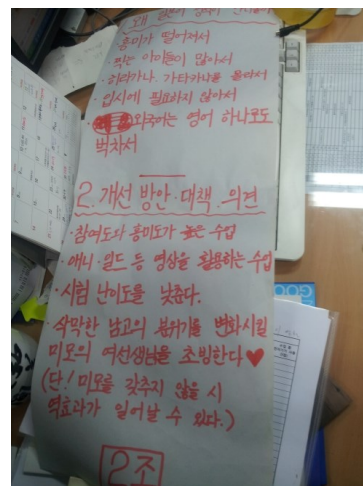 왜 일본어
흥미가 떨어져서
자는 아이들이 많아서
히라가나, 가타카나를 몰라서
입시에 필요하지 않아서
외국어는 영어 하나로도
벅차서
2. 개선 방안·대책·의견
·참여도와 흥미도가 높은 수업
·애니·일드 등 영상을 활용하는 수업
·시험 난이도를 낮춘다.
·삭막한 남고의 분위기를 변화시킬
미모의 여선생님을 초빙한다♥
(단! 미모를 갖추지 않을 시
역효과가 일어날 수 있다.)
2조